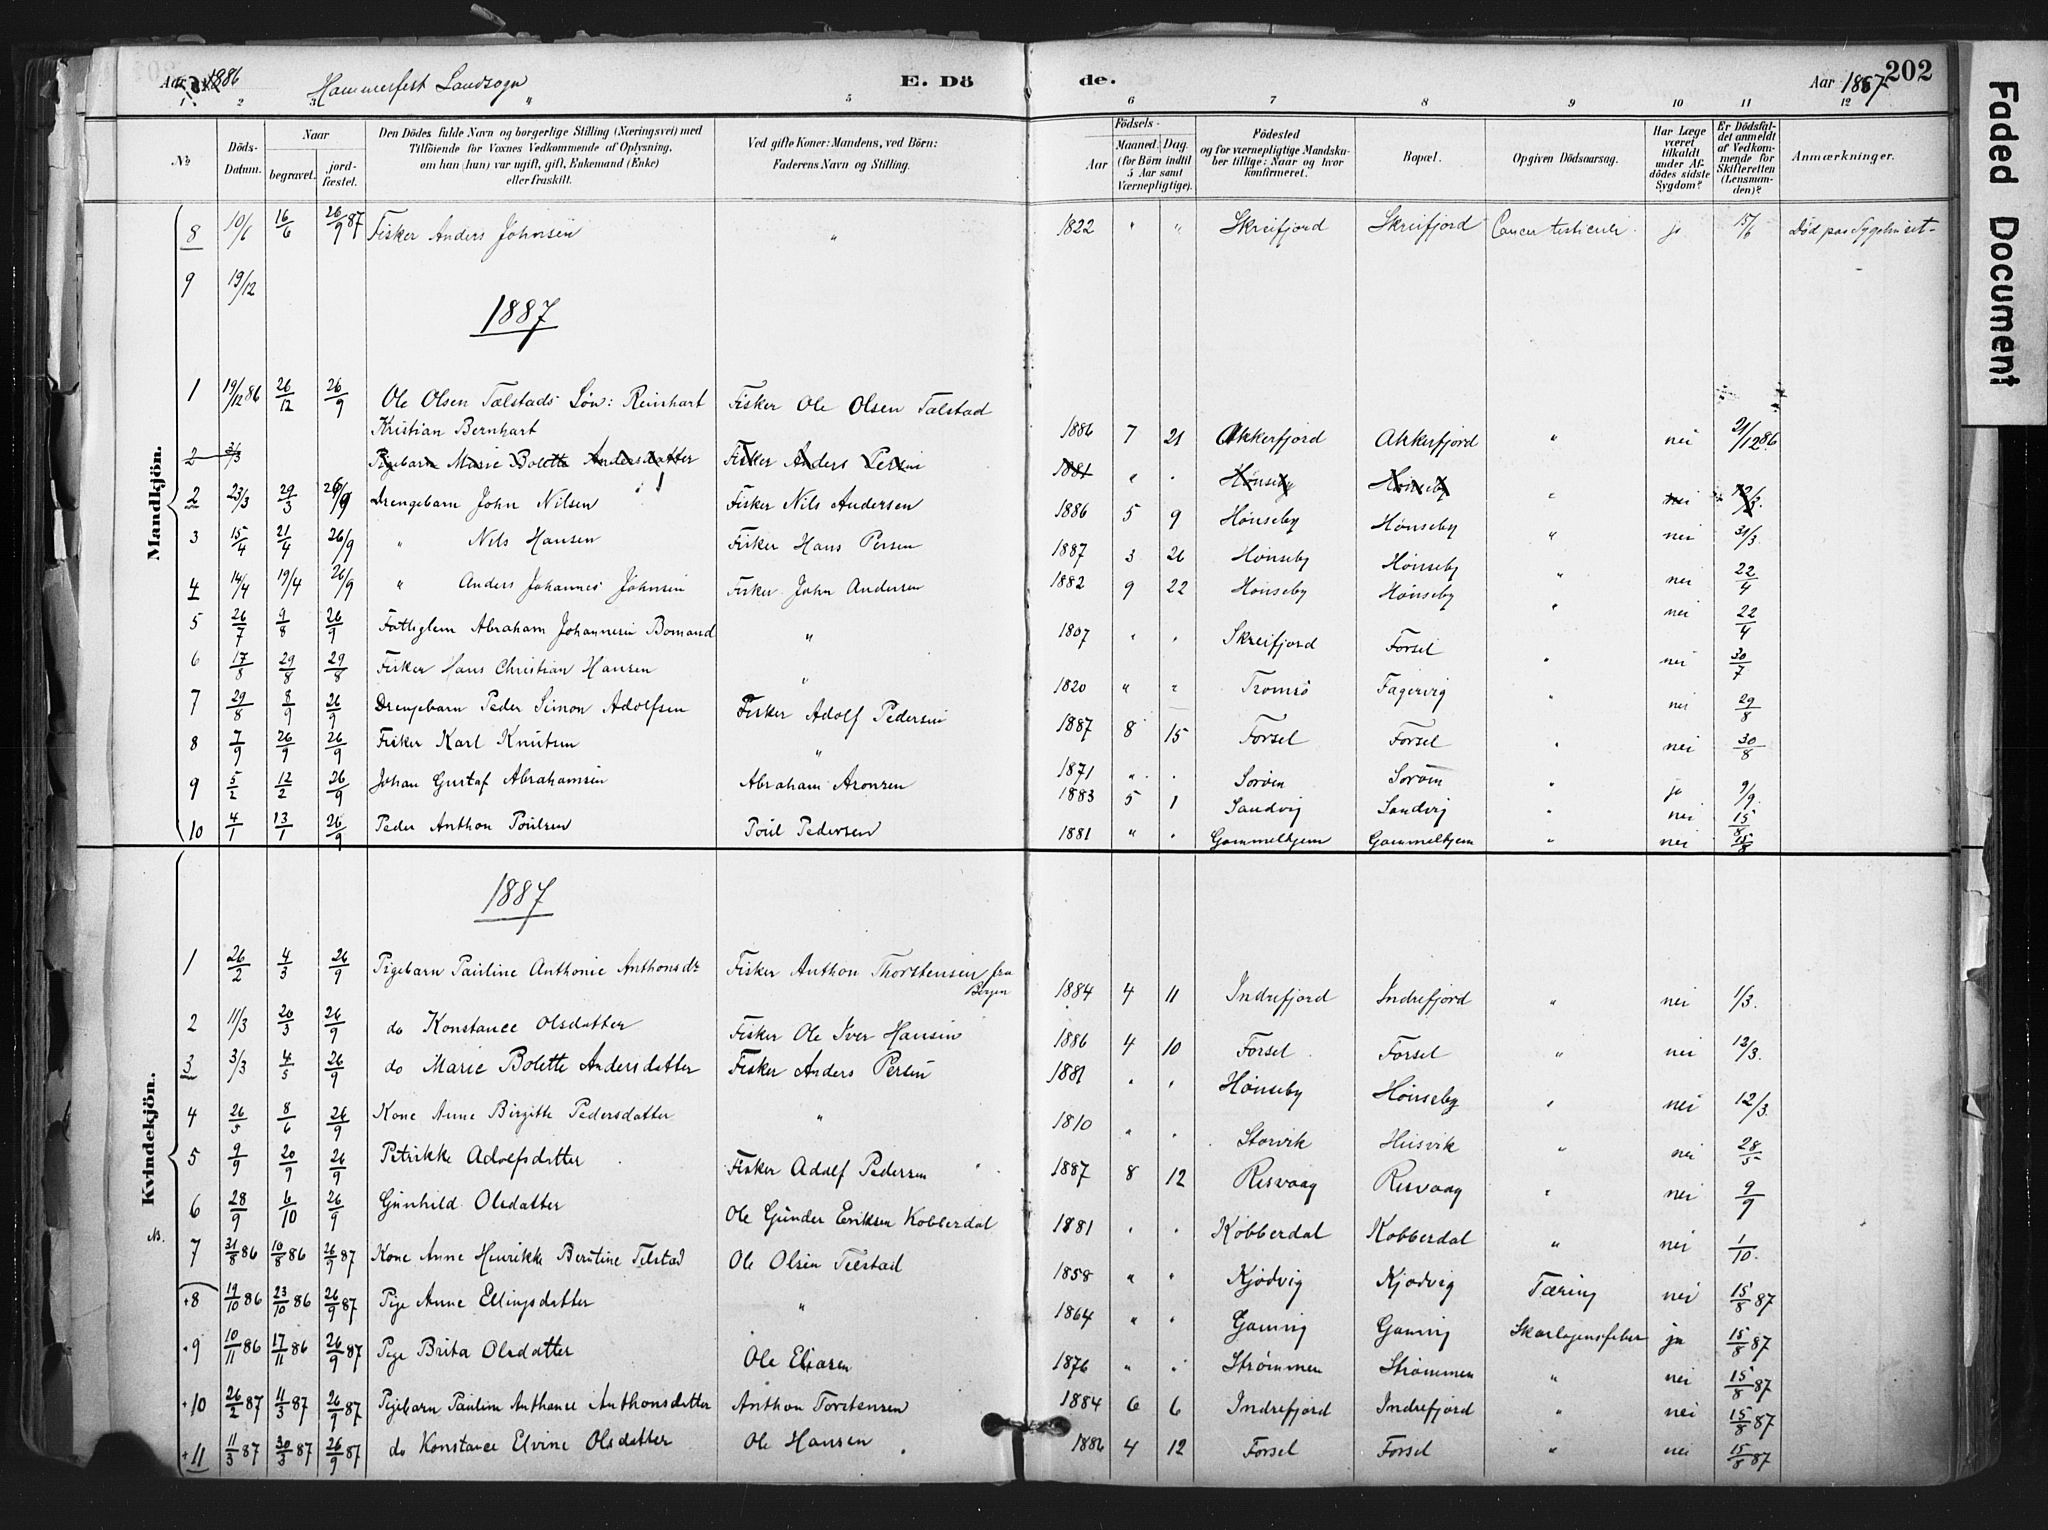 Aar 1886 Hammerfest Landsogn E. Döde. Aar 1887 202
1 2 3 4 5 6 7 8 9 10 11 12
№
Döds-Datum.
Naar
begravet.
jord-fæstet.
Den Dödes fulde Navn og borgerlige Stilling (Næringsvei) med Tilföiende for Voxnes Vedkommende af Oplysning, om han (hun) var ugift, gift, Enkemand (Enke) eller fraskilt.
Ved gifte Koner: Mandens, ved Börn: Faderens Navn og Stilling.
Födsels-
Aar
Maaned. Dag.
(for Börn indtil 5 Aar samt Værnepligtige).
Födested og for værnepligtige Mandskaber tillige: Naar og hvor konfirmeret.
Bopæl.
Opgiven Dödsaarsag.
Har Læge været tilkaldt under Afdödes sidste Sygdom?
Er Dödsfaldet anmeldt af Vedkommende for Skifteretten (Lensmanden)?
Anmærkninger.
Mandkjön.
8 10/6 16/6 26/9 87 Fisker Anders Johnsen " 1822 " " Skreifjord Skreifjord Cancer testiculi ja 15/6 Död paa Sygehuset
9 19/12
1887
1 19/12 86 26/12 26/9 Ole Olsen Talstads Sön: Reinhart Kristian Bernhart Fisker Ole Olsen Talstad 1886 7 21 Akkerfjord Akkerfjord " nei 21/12 86.
2 3/3 Pigebarn Marie Bolette Andersdatter Fisker Anders Persen 1881 " " Hönseby Hönseby " nei 12/3.
2 23/3 29/3 26/9 Drengebarn John Nilsen Fisker Nils Andersen 1886 5 9 Hönseby Hönseby " nei 31/3.
3 15/4 21/4 26/9 " Nils Hansen Fisker Hans Persen 1887 3 26 Hönseby Hönseby " nei 22/4
4 14/4 19/4 26/9 " Anders Johannes Johnsen Fisker John Andersen 1882 9 22 Hönseby Hönseby " nei 22/4
5 26/7 9/8 26/9 Fattiglem Abraham Johannesen Bomand " 1807 " " Skreifjord Forsel " nei 30/7
6 17/8 29/8 29/8 Fisker Hans Christian Hansen " 1820 " " Tromsö Fagervig " nei 29/8
7 29/8 8/9 26/9 Drengebarn Peder Simon Adolfsen Fisker Adolf Pedersen 1887 8 15 Forsel Forsel " nei 30/8
8 7/9 26/9 26/9 Fisker Karl Knutsen " 1871 " " Soröen Soröen " ja 9/9.
9 5/2 12/2 26/9 Johan Gustaf Abrahamsen Abraham Aronsen 1883 5 1 Sandvig Sandvig " nei 15/8
10 4/1 13/1 26/9 Peder Anthon Poulsen Poul Pedersen 1881 " " Gammelhjem Gammelhjem " nei 15/8
Kvindekjön.
1887
1 26/2 4/3 26/9 Pigebarn Pauline Anthonie Anthonsdr Fisker Anthon Thorstensen fra Bergen 1884 4 11 Indrefjord Indrefjord " nei 1/3.
2 11/3 20/3 26/9 do Konstance Olsdatter Fisker Ole Iver Hansen 1886 4 10 Forsel Forsel " nei 12/3.
3 3/3 4/5 26/9 do Marie Bolette Andersdatter Fisker Anders Persen 1881 " " Hönseby Hönseby " nei 12/3.
4 26/5 8/6 26/9 Kone Anne Birgitte Pedersdatter " 1810 " " Storvik Husvik " nei 28/5
5 9/9 20/9 26/9 Petrikke Adolfsdatter Fisker Adolf Pedersen 1887 8 12 Risvaag Risvaag " nei 9/9
6 28/9 6/10 26/9 Gunhild Olsdatter Ole Gunder Eriksen Kobberdal 1881 " " Kobberdal Kobberdal " nei 1/10.
7 31/8 86 10/8 86 26/9 87 Kone Anne Henrikke Berntine Telstad Ole Olsen Telstad 1858 " " Kjödvig Kjödvig Tæring nei 15/8 87
+8 19/10 86 23/10 86 26/9 87 Pige Anne Ellingsdatter " 1864 " " Gamvig Gamvig Skarlagensfeber ja 15/8 87
9 10/11 86 17/11 86 26/9 87 Pige Brita Olsdatter Ole Eliasen 1876 " " Strömmen Strömmen " nei 15/8 87
+10 26/2 87 11/3 87 26/9 87 Pigebarn Pauline Anthance Anthonsdatter Anthon Torstensen 1884 6 6 Indrefjord Indrefjord " nei 15/8 87
+11 11/3 87 30/3 87 26/9 87 do Konstance Elvine Olsdatter Ole Hansen 1886 4 12 Forsel Forsel " nei 15/8 87
Faded Document